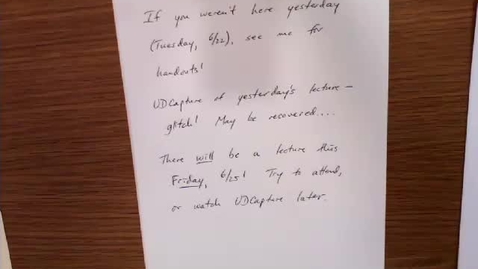 If you weren't here yesterday
(Tuesday, 6/22), see me for
handouts!
UDCapture of yesterday's lecture –
glitch! May be recovered...
There will be a lecture this
Friday, 6/25! Try to attend,
or watch UDCapture later.